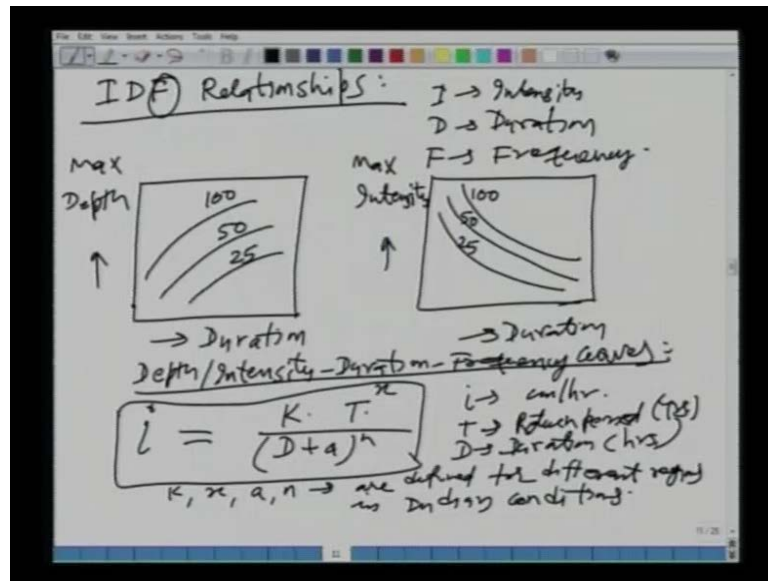 File Edit View Insert Actions Tools Help
IDF Relationships:
I → Intensity
D → Duration
F → Frequency.
Max Depth ↑
100
50
25
→ Duration
Max Intensity ↑
100
50
25
→ Duration
Depth/Intensity-Duration-Frequency curves:
i = K. T^x / (D+a)^n
i → cm/hr.
T → Return period (yrs)
D → Duration (hrs)
K, x, a, n → are defined for different regions
in Indian conditions.